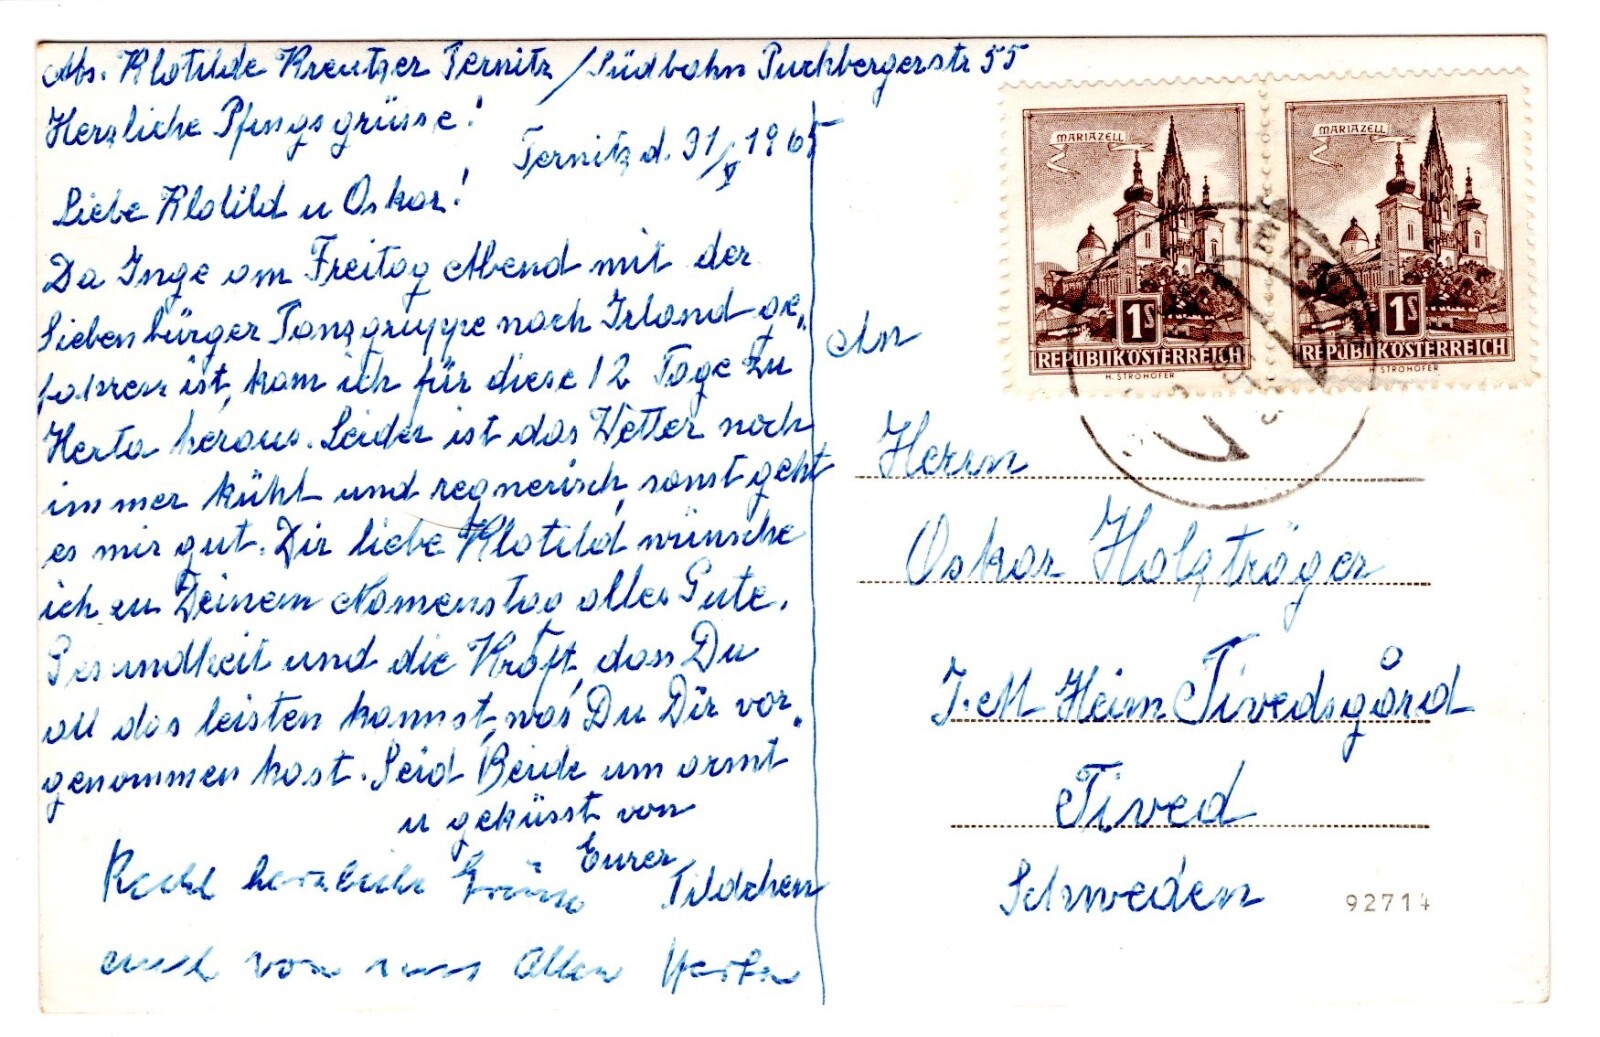 Abs. Klotilde Kreutzer Ternitz / Südbahn Puchbergerstr 55
Herzliche Pfingsgrüsse!
Ternitz d. 31/V 1965
Liebe Klotild u Oskar!
Da Inge am Freitag Abend mit der
Siebenbürger Tanzgruppe nach Irland ge„
fahren ist, kam ich für diese 12 Tage zu
Herta heraus. Leider ist das Wetter noch
immer kühl und regnerisch, sonst geht
es mir gut. Dir liebe Klotild wünsche
ich zu Deinem Namenstag alles Gute,
Gesundheit und die Kraft, dass Du
all das leisten kannst, was Du Dir vor„
genommen hast. Seid Beide um armt
u geküsst von
Eurer
Tildchen
Recht herzliche Grüsse
auch von uns Allen Herta
MARIAZELL
1S
REPUBLIK ÖSTERREICH
H. STROHOFER
MARIAZELL
1S
REPUBLIK ÖSTERREICH
H. STROHOFER
An
Herrn
Oskar Holzträger
I.M Heim Tivedsgård
Tived
Schweden
92714